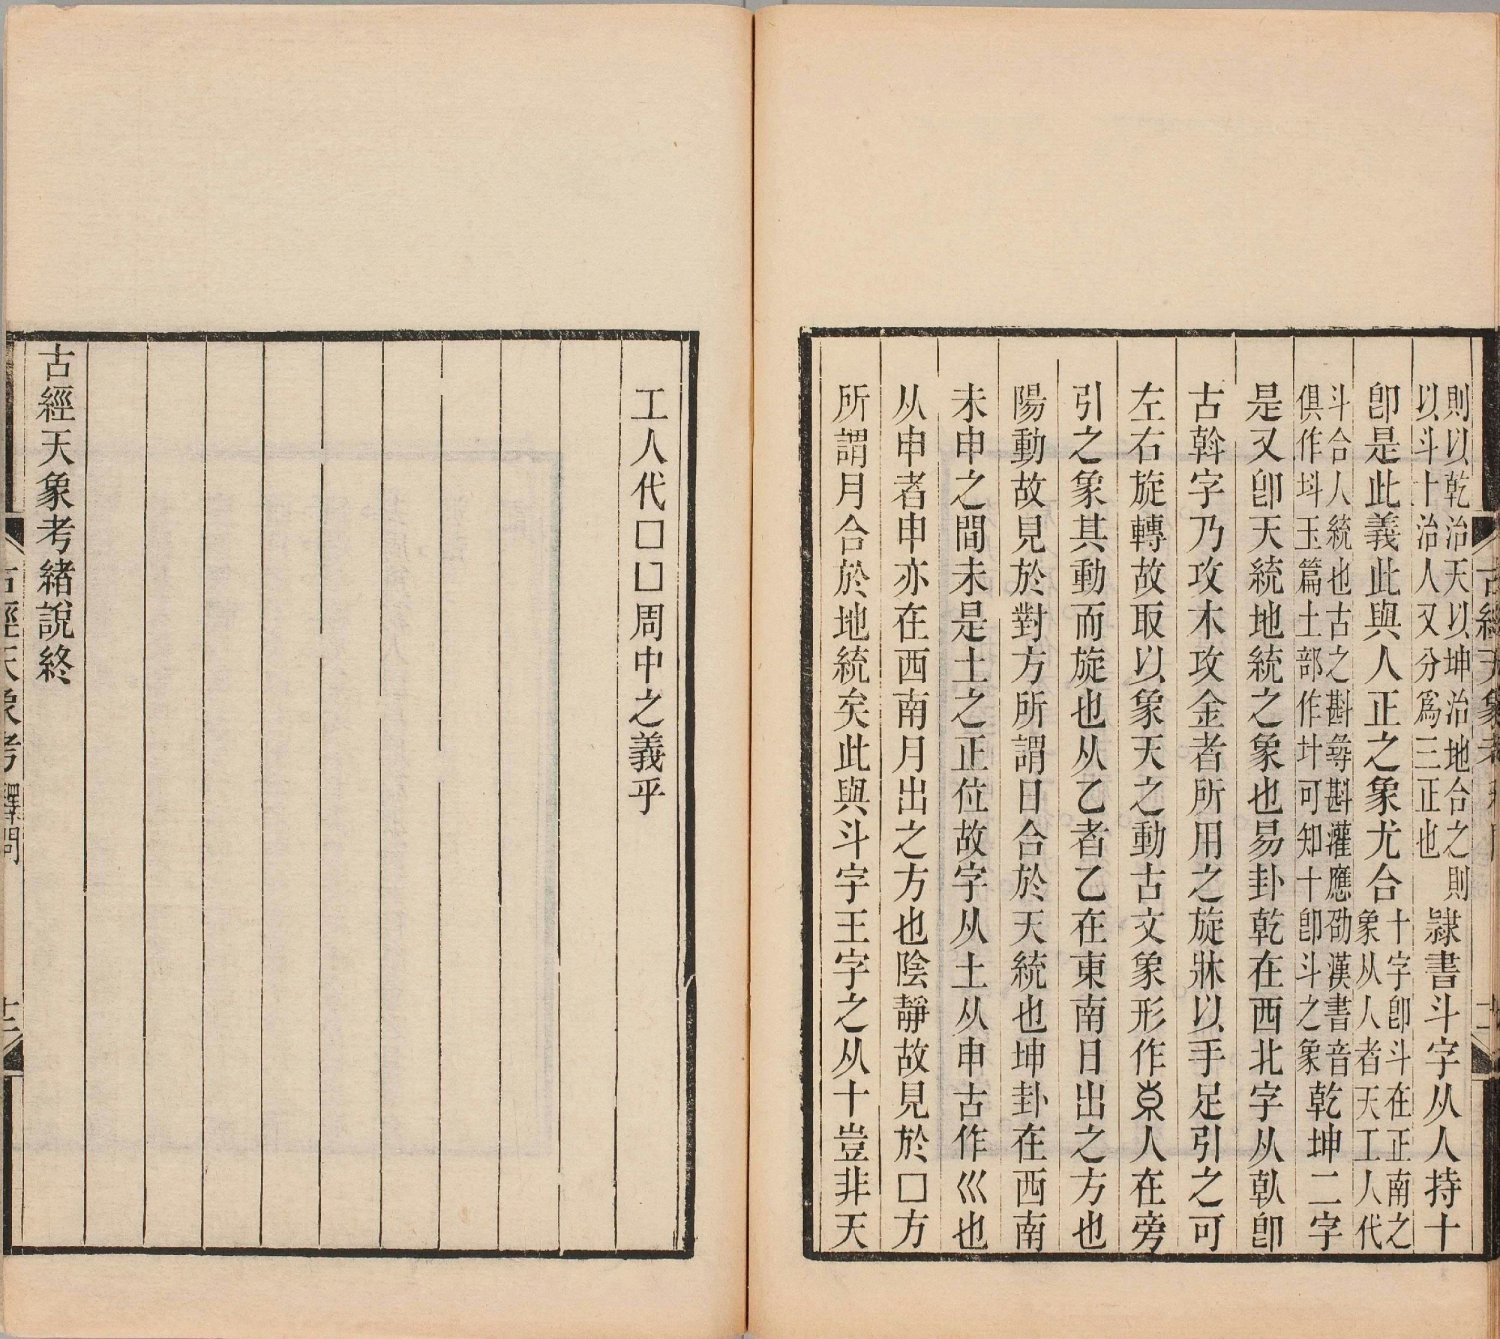 則以乾治天以坤治地合之則
以斗十治人又分爲三正也
隷書斗字从人持十
卽是此義此與人正之象尤合
十字卽斗在正南之
象从人者天工人代
斗合人統也古之斟尋斟灌應劭漢書音
俱作㪷玉篇土部作㘰可知十卽斗之象
乾坤二字
是又卽天統地統之象也易卦乾在西北字从倝卽
古斡字乃攻木攻金者所用之旋牀以手足引之可
左右旋轉故取以象天之動古文象形作 人在旁
引之之象其動而旋也从乙者乙在東南日出之方也
陽動故見於對方所謂日合於天統也坤卦在西南
未申之間未是土之正位故字从土从申古作巛也
从申者申亦在西南月出之方也陰靜故見於□方
所謂月合於地統矣此與斗字王字之从十豈非天
古經天象考
工人代□凵周中之義乎
古經天象考緒說終
古經天象考 釋問
十二